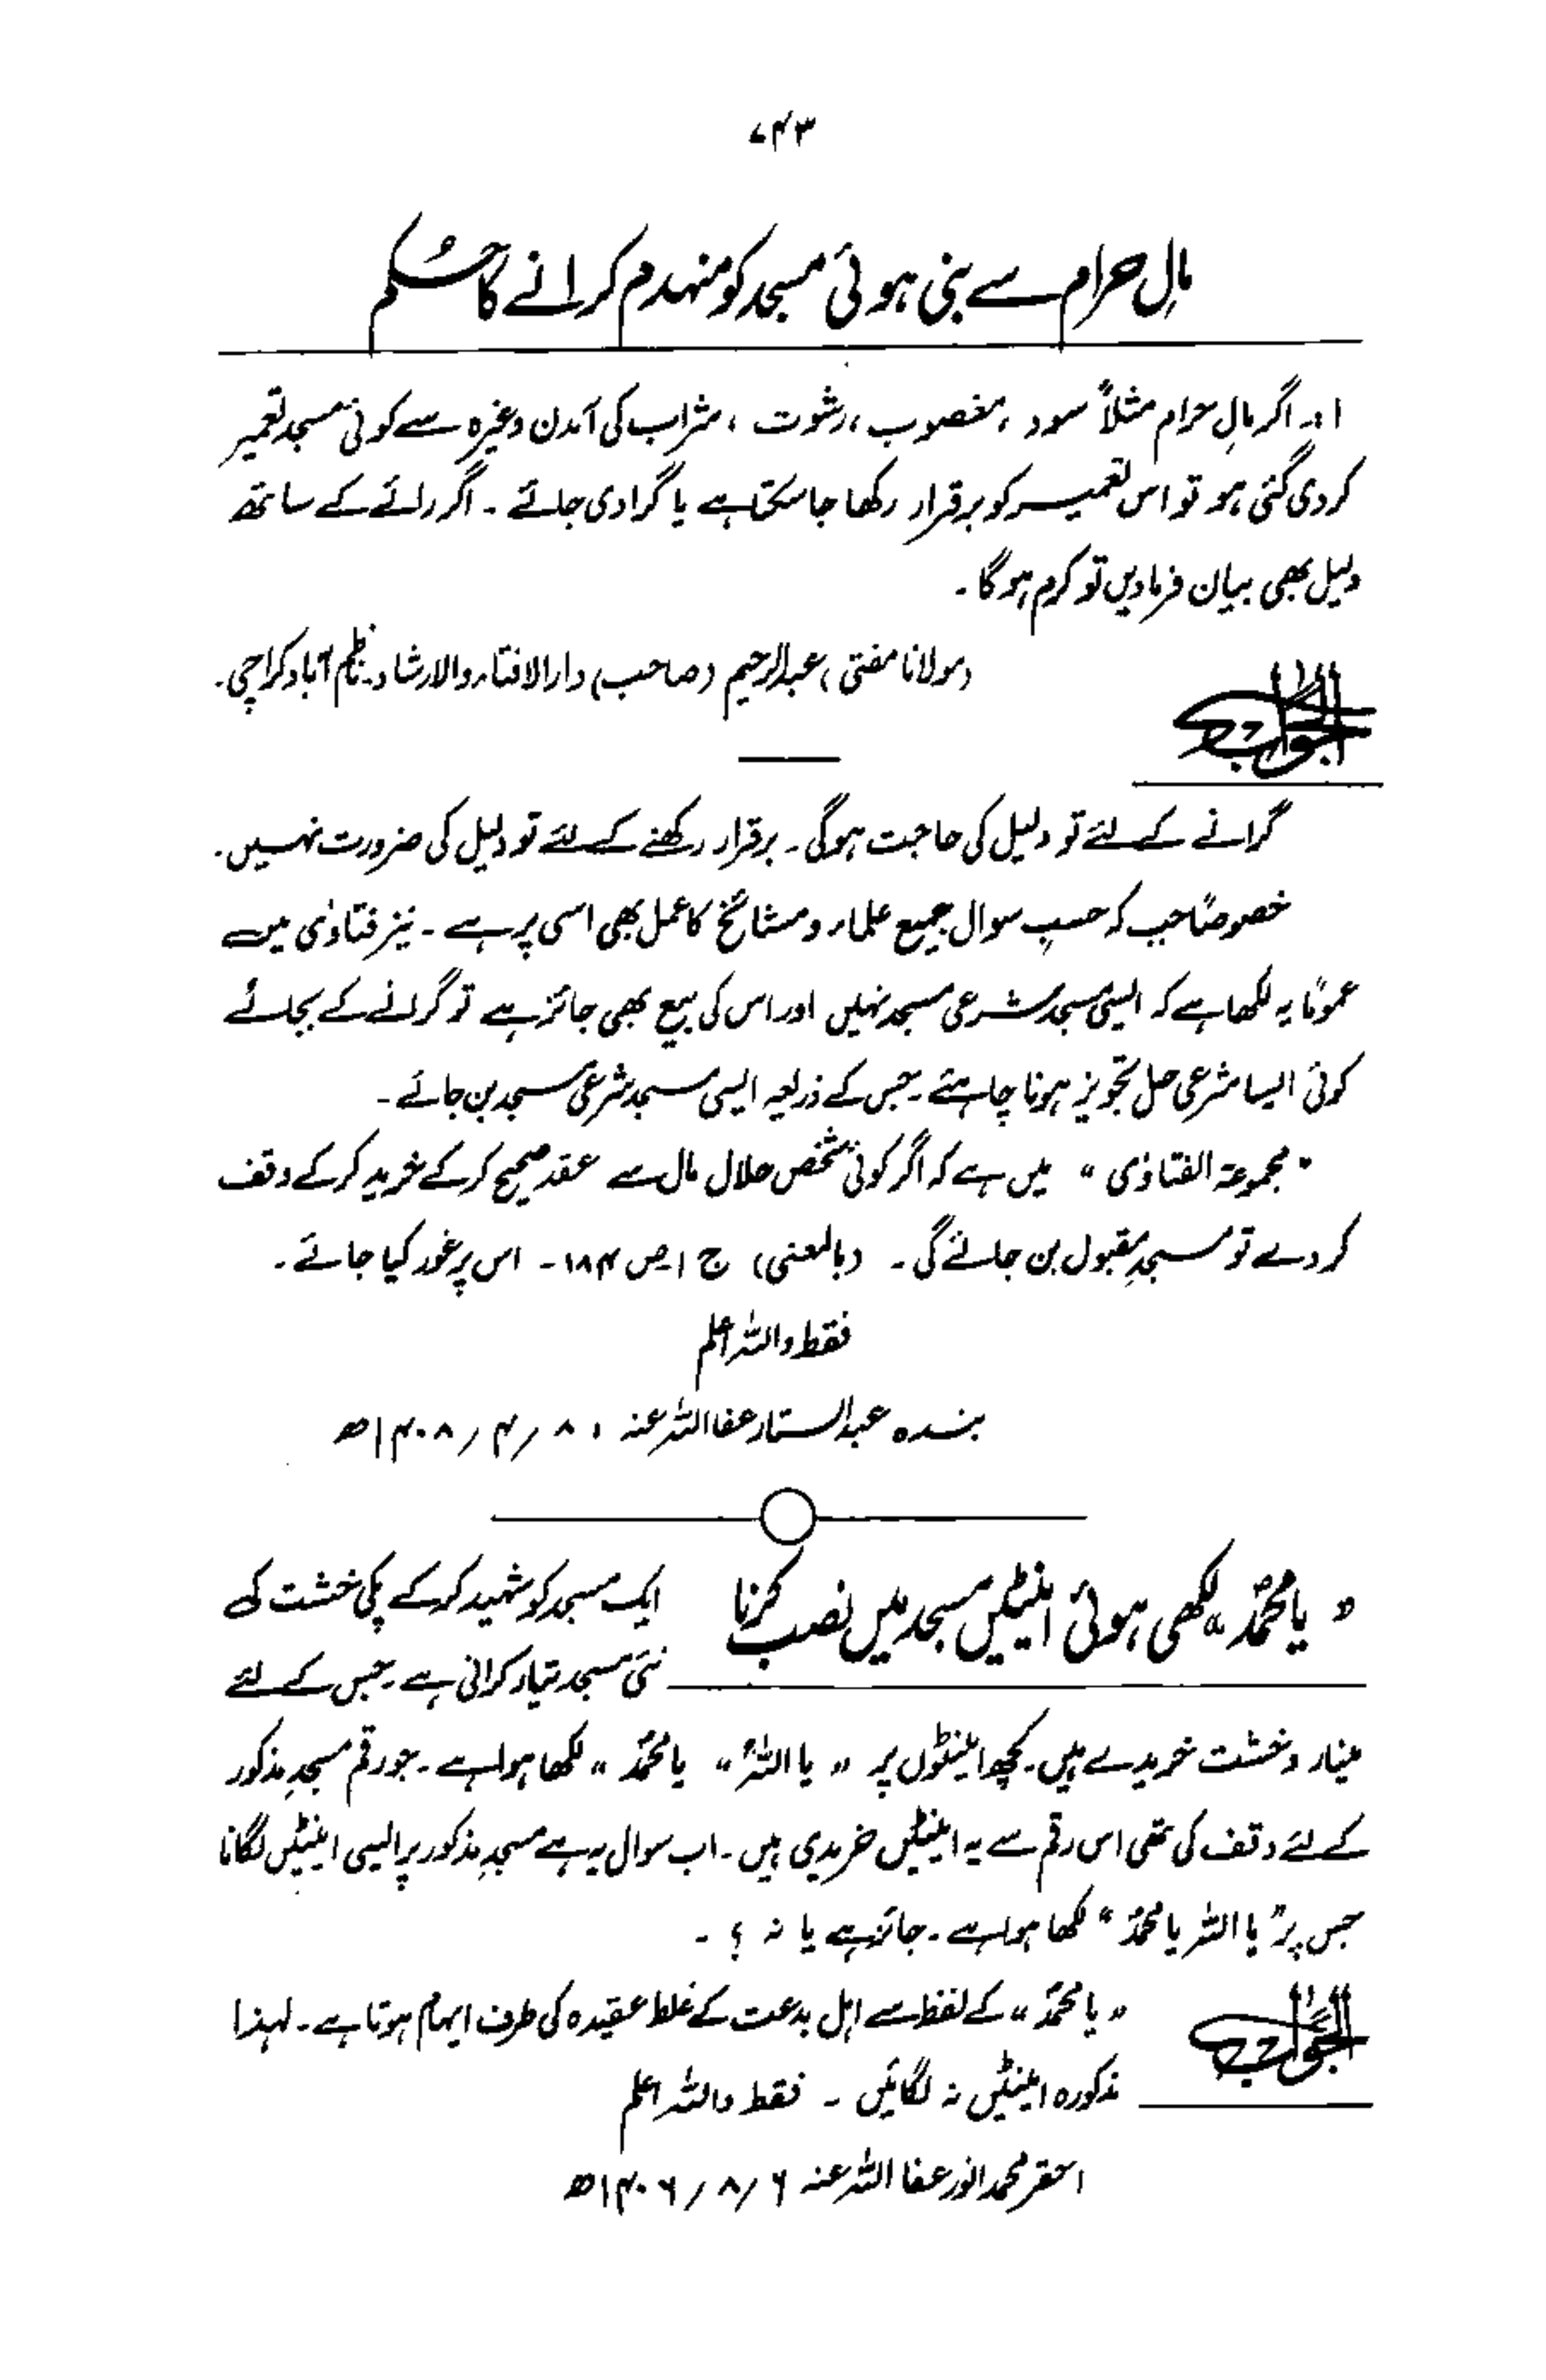 ۷۴۳
مالِ حرام سے بنی ہوئی مسجد کو منہدم کرانے کا حُکم
۱۔ اگر مالِ حرام مثلاً سود ، مغصوب ، رشوت ، شراب کی آمدن وغیرہ سے کوئی مسجد تعمیر
کردی گئی ہو تو اس تعمیر کو برقرار رکھا جاسکتا ہے یا گرا دی جائے ۔ اگر رائے کے ساتھ
دلیل بھی بیان فرمادیں تو کرم ہوگا ۔
(مولانا مفتی) عبدالرحیم (صاحب) دارالافتاء والارشاد، ناظم آباد کراچی ۔
الجواب
گرانے کے لئے تو دلیل کی حاجت ہوگی ۔ برقرار رکھنے کے لئے تو دلیل کی ضرورت نہیں ۔
خصوصًا جب کہ حسبِ سوال جمیع علماء و مشائخ کا عمل بھی اسی پر ہے ۔ نیز فتاوٰی میں
عمومًا یہ لکھا ہے کہ ایسی مسجد شرعی مسجد نہیں اور اس کی بیع بھی جائز ہے تو گرانے کے بجائے
کوئی ایسا شرعی حل تجویز ہونا چاہئے ۔ جس کے ذریعہ ایسی مسجد شرعی مسجد بن جائے ۔
" مجموعۃ الفتاوٰی " میں ہے کہ اگر کوئی شخص حلال مال سے عقدِ صحیح کرکے خرید کرکے وقف
کر دے تو مسجدِ مقبول بن جائے گی ۔ (بالمعنی) ج ۱ ص ۱۸۴ ۔ اس پر غور کیا جائے ۔
فقط واللہ اعلم
بندہ عبدالستار عفا اللہ عنہ ، ۸ / ۴ / ۱۴۰۸ھ
" یا محمدؐ " لکھی ہوئی اینٹیں مسجد میں نصب کرنا
ایک مسجد کو شہید کرکے پکی خشت کی
نئی مسجد تیار کرانی ہے ۔ جس کے لئے
مینار و خشت خریدے ہیں ۔ کچھ اینٹوں پر " یا اللہُ " یا محمدؐ " لکھا ہوا ہے ۔ جو رقم مسجدِ مذکور
کے لئے وقف کی تھی اس رقم سے یہ اینٹیں خریدی ہیں ۔ اب سوال یہ ہے مسجدِ مذکور پر ایسی اینٹیں لگانا
جس پر " یا اللہ یا محمدؐ " لکھا ہوا ہے ۔ جائز ہے یا نہ ؟ ۔
الجواب
" یا محمدؐ " کے لفظ سے اہل بدعت کے غلط عقیدہ کی طرف ایہام ہوتا ہے ۔ لہذا
مذکورہ اینٹیں نہ لگائیں ۔ فقط واللہ اعلم
احقر محمد انور عفا اللہ عنہ ۶ / ۸ / ۱۴۰۶ھ